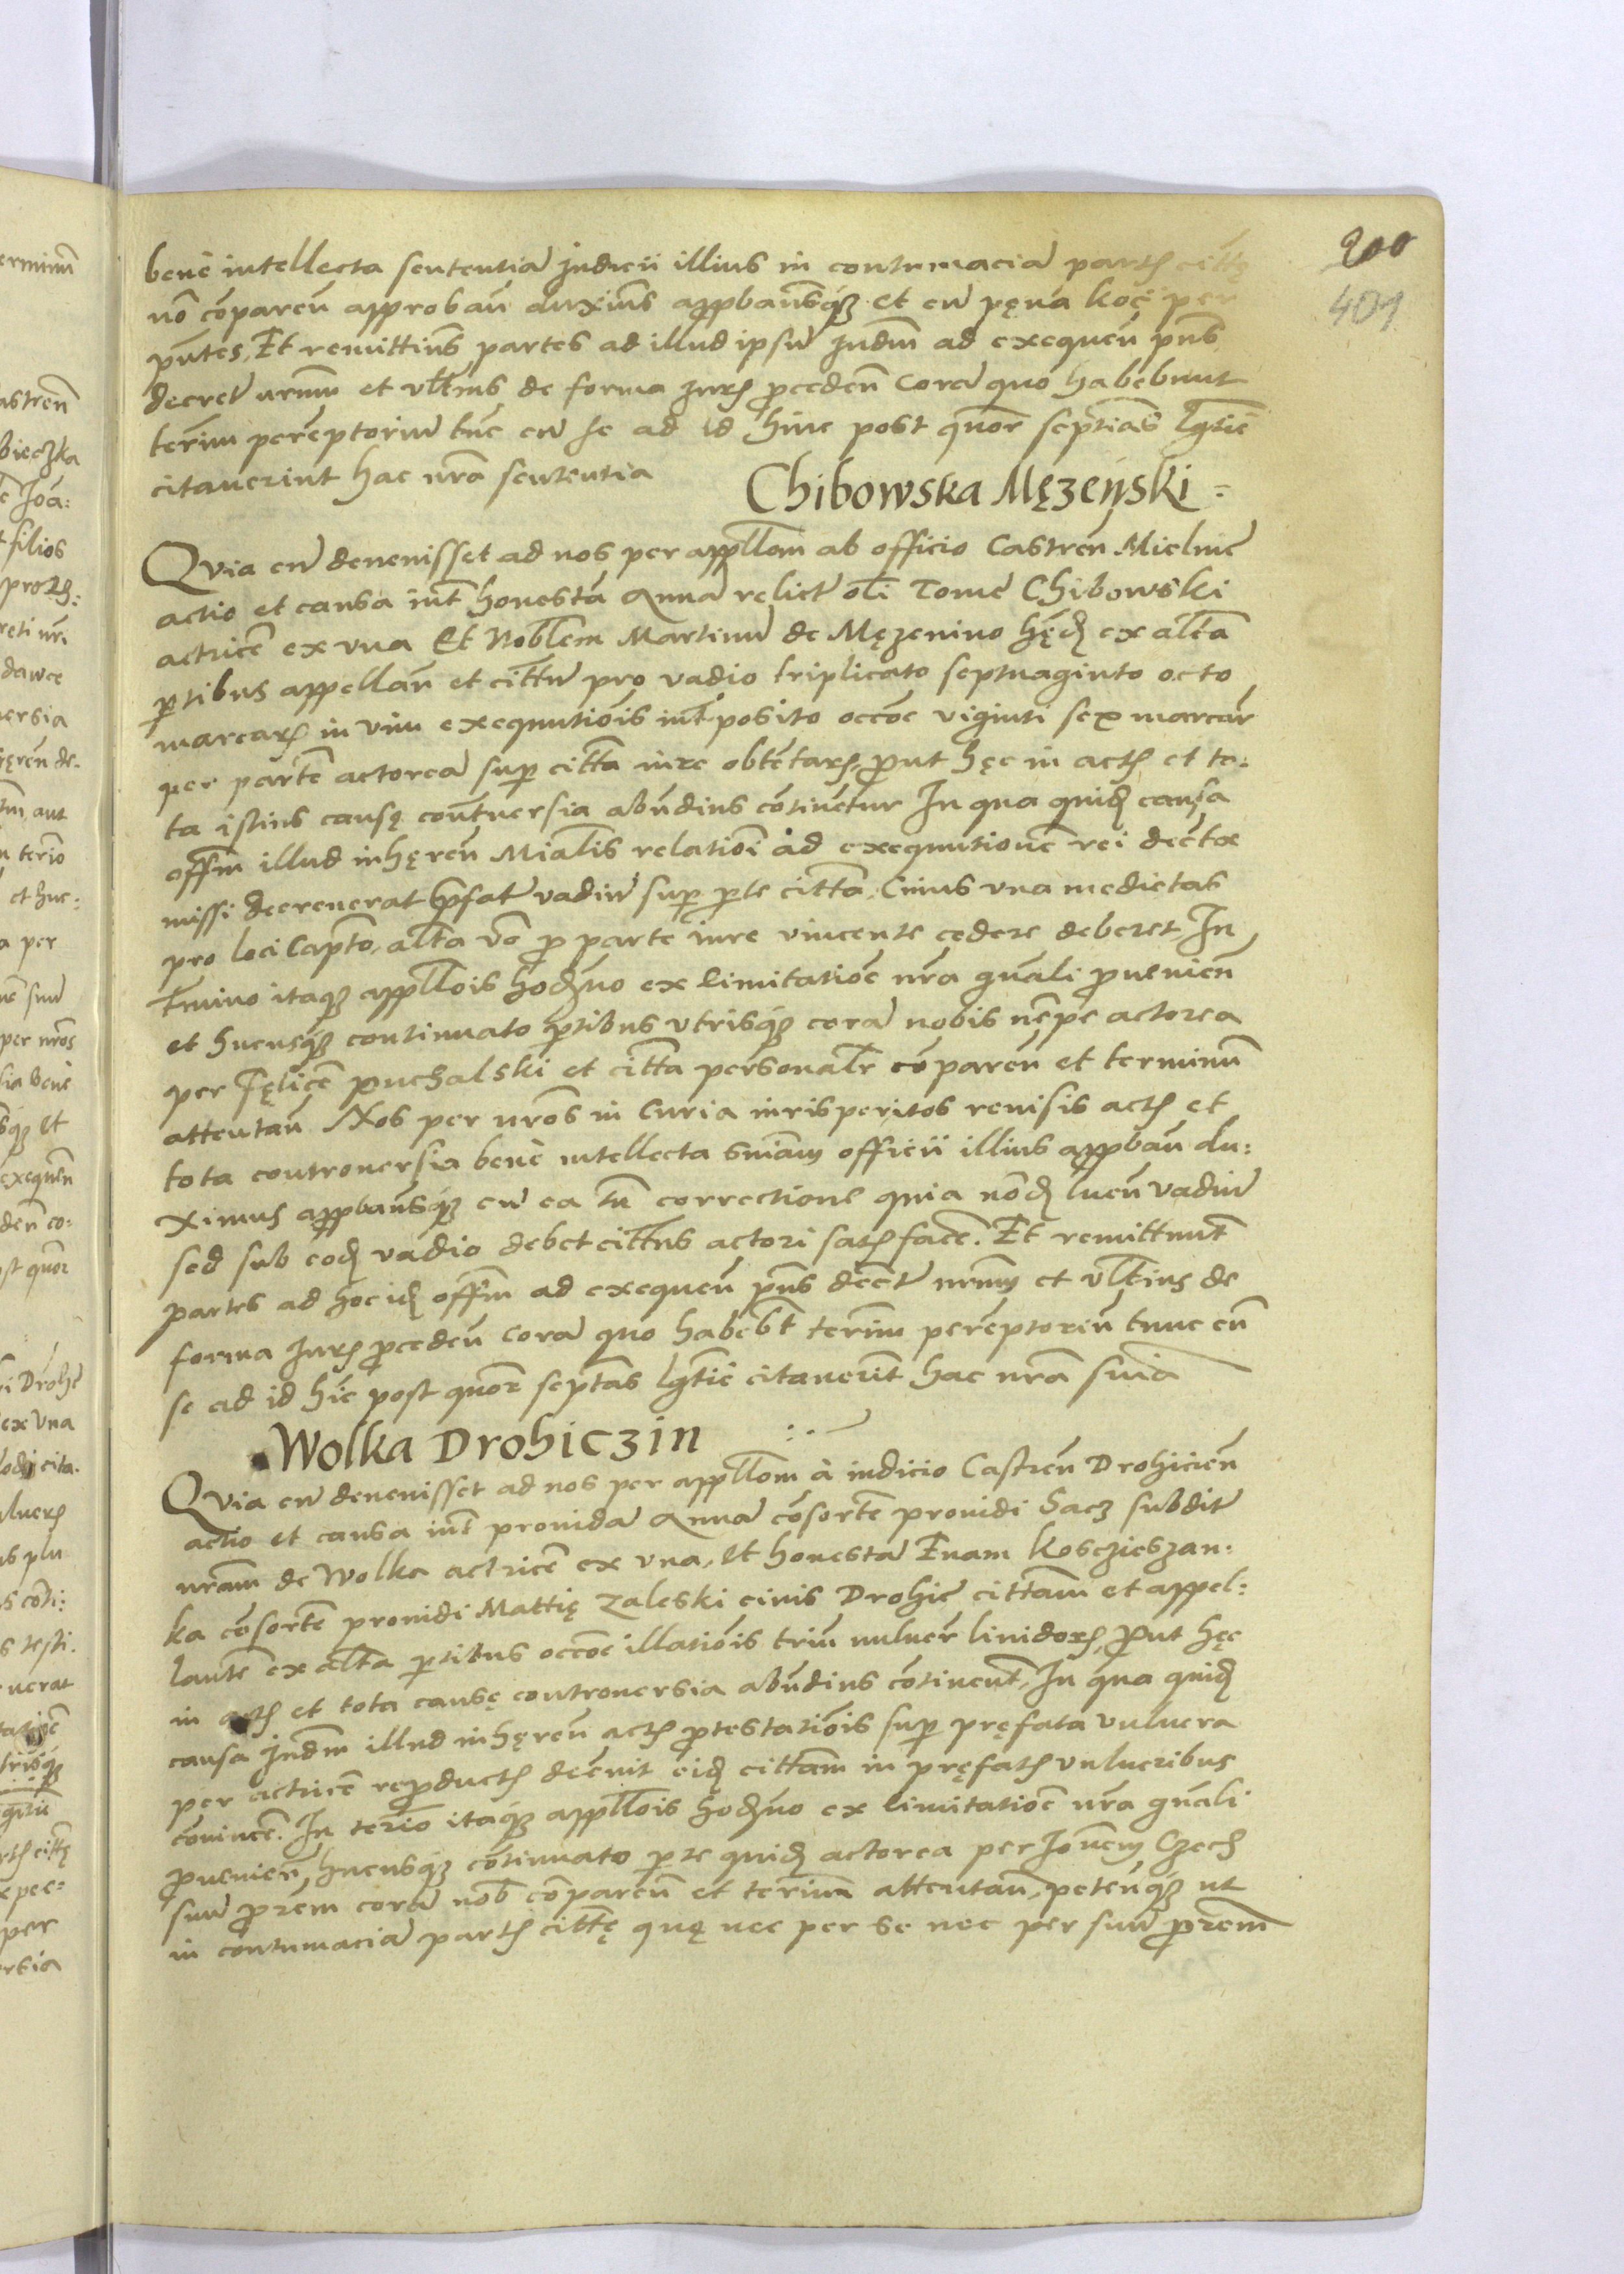 200
401
bene intellecta sententia Judicii illius in contumacia part(is) citte
no(n) co(m)paren̄ approbaū duxim(us) approbam(us)q(ue) et cu(m) pęna koćz per
pn̄tes, Et remittim(us) partes ad illud ipsu(m) Judm̄ ad exequeñ pn̄s
decret(um) nr̄um et vlt(er)ius de forma Jur(is) p(ro)ceden̄ Cora(m) quo habebunt
termīnu(m) peremptoriu(m) tu(n)c cu(m) se ad id hinc post quor̄ septīas lgtīe
citauerint hac nr̄a sententia
Chibowska Męzeński
Quia cu(m) deuenisset ad nos per appllom̄ ab officio Castren̄ Mielnic̄
actio et causa int̄ honestā Annā relictā oli(m) Tome Chibowski
actricē ex vna Et Nobĺem Martinu(m) de Męzenino hęd(em) ex alt(er)a
p(ar)tibus appellan̄ et cittū pro vadio triplicato septuaginto octo
marcar(um) in vim exequutiōis int(er)posito occōe viginti sex marcar̄
per partē actoreā sup(er) citt̄a iure obtētar(um), p(ro)ut hęc in act(is) et to:
ta istius causę contu(er)ersia abūdius cōtinetur In qua quid(em) causa
offm̄ illud inhęren̄ Mīalis relatiōi ad exequutionē rei dectæ
missi decreuerat p(re)fatū vadiu(m) sup(er) p(ar)te citta, Cuius vna medietas
pro loci Captō, alt(er)a vō p(ro) parte iure vincente cędere deberet, In
tmino itaq(ue) appllōis hodīno ex limitatiōe nr̄a gn̄ali p(ro)uenien̄
et hucusq(ue) continuato p(ar)tibus vtrisq(ue) cora(m) nobis nēpe actorea
per Fęlicē Puchalski et citt̄a personalr̄ cōparen̄ et terminū
attentan̄ Nos per nr̄os in Curia iurisperitos reuisis act(is) et
tota controuersia bene intellecta snīam officii illius appbaū du:
ximus appbam(us)q(ue) cu(m) ea tn̄ correctione quia nō id(em) luen̄ vadiu(m)
sed sub eod(em) vadio debet citt(us) actori sat(is)face(re). Et remittunt̄
partes ad hoc id(em) offm̄ ad exequen̄ pn̄s dēct(um) nr̄um et vlt(er)ius de
forma Jur(is) p(ro)ceden̄ cora(m) quo habebt̄ termīnu(m) peremptoriū tunc cū
se ad id hīc post quor̄ septīas lgtīe citauerīt hac nr̄a sniā
Wolka Drohiczin
Quia cu(m) deuenisset ad nos per appllom̄ à iudicio Castren̄ Drohicien̄
actio et causa int̄ prouidā Annā cōsortē prouidi Sacz subditi
nr̄am de Wolka actricē ex vna, Et honestā Euam Kosczieszan:
ka cōsortē prouidi Mattię Zaleski ciuis Drohic̄ cittam̄ et appel:
lantē ex alt(er)a p(ar)tibus occōe illatiōis triu(m) vulner̄ liuidor(um), p(ro)ut hęc
in act(is) et tota causę controuersia abūdius cōtinent(ur), In qua quid(em)
causa Judm̄ illud inhęren̄ act(is) p(ro)testatiōis sup(er) pręfata vulnera
per actricē rep(ro)duct(is) dēcuit eid(em) cittam̄ in pręfat(is) vulneribus
cōuince(re). In termīo itaq(ue) appllōis hodīno ex limitatiōe nr̄a gn̄ali
p(ro)uenien̄, hucusq(ue) cōtinuato p(ar)te quid(em) actorea per Joēnem Czech
suu(m) p(ro)rem̄ cora(m) nob(is) cōparen̄ et termīnu(m) attentan̄, petenq(ue) ut
in contumacia(m) part(is) cittę quę nec per se nec per suu(m) p(ro)rem̄